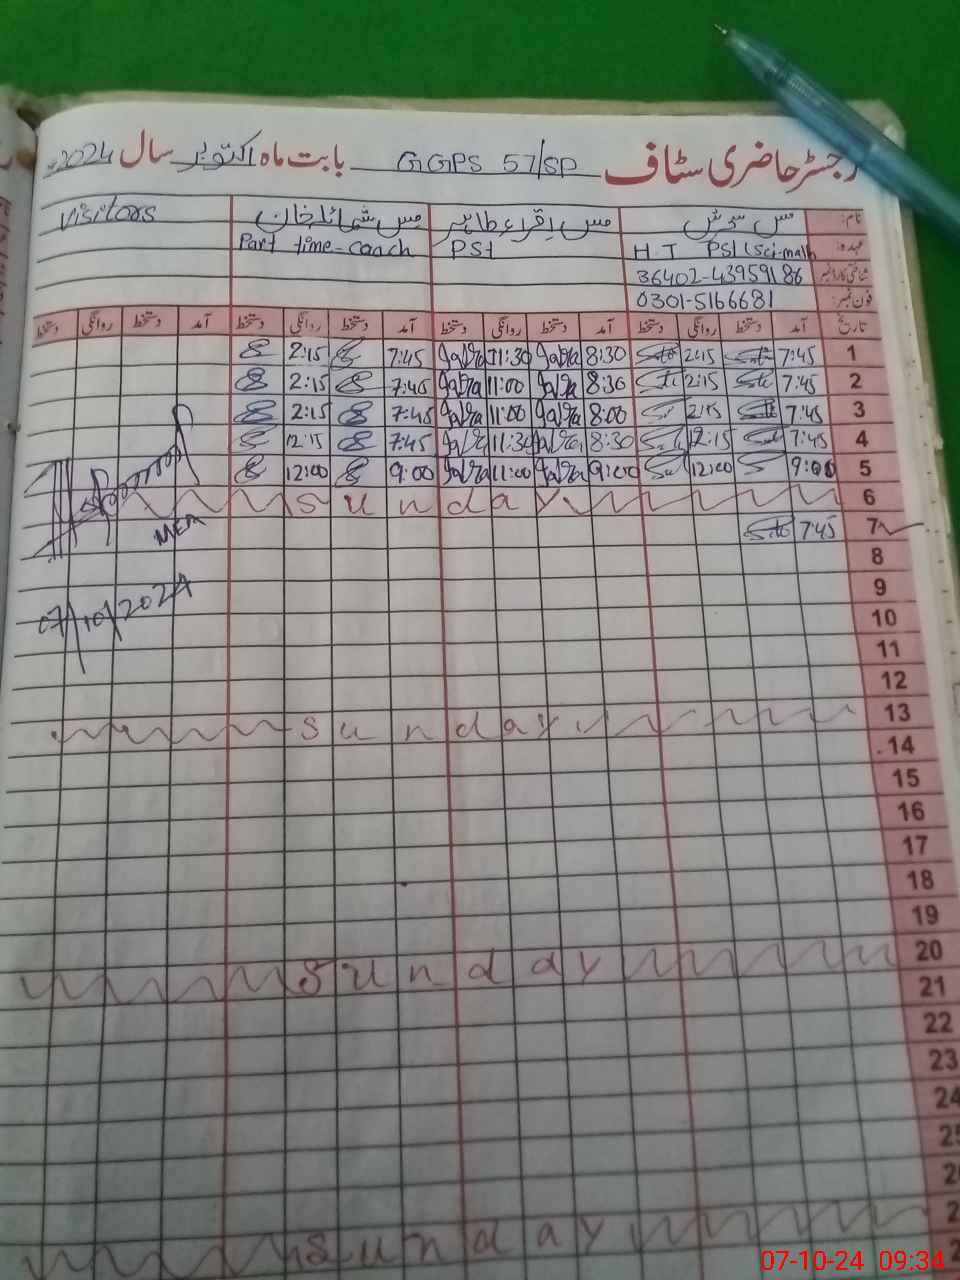 رجسٹر حاضری سٹاف GGPS 57/SP بابت ماہ اکتوبر سال 2024ء
نام: مس سحرش مس اقراء طاہر مس شمائلہ خان Visitors
عہدہ: H.T PST (Sci-math PSt Part time-coach
شناختی کارڈ نمبر 36402-4395918 6
فون نمبر: 0301-5166681
تاریخ آمد دستخط روانگی دستخط آمد دستخط روانگی دستخط آمد دستخط روانگی دستخط آمد دستخط روانگی دستخط
1 7:45 2:15 8:30 11:30 7:45 2:15
2 7:45 2:15 8:30 11:00 7:45 2:15
3 7:45 2:15 8:00 11:00 7:45 2:15
4 7:45 12:15 8:30 11:30 7:45 12:15
5 9:00 12:00 9:00 11:00 9:00 12:00
6 Sunday
7 7:45
MEA
8
9
07/10/2024
10
11
12
13 Sunday
14
15
16
17
18
19
20 Sunday
21
22
23
24
25
2
2
Sunday
2
07-10-24 09:34